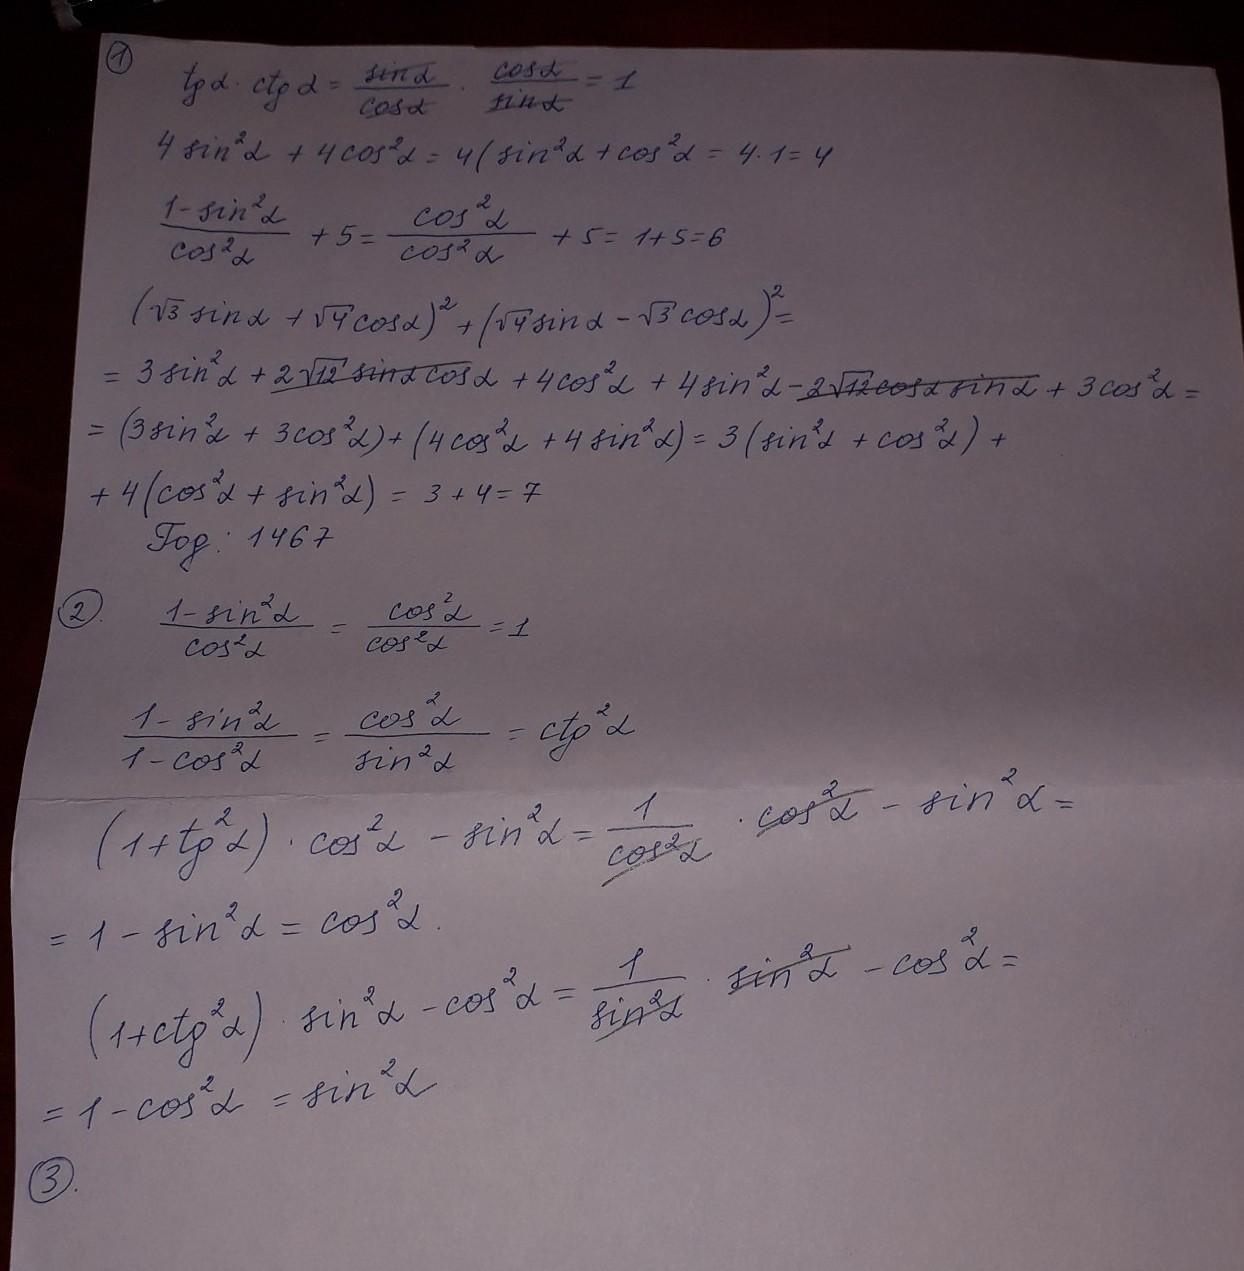 ①
tgα · ctgα = sinα/cosα · cosα/sinα = 1
4 sin²α + 4cos²α = 4(sin²α + cos²α = 4·1 = 4
1-sin²α/cos²α + 5 = cos²α/cos²α + 5 = 1+5=6
(√3 sinα + √4 cosα)² + (√4 sinα - √3 cosα)² =
= 3 sin²α + 2√12 sinα cosα + 4cos²α + 4 sin²α - 2√12 cosα sinα + 3 cos²α =
= (3sin²α + 3cos²α) + (4cos²α + 4 sin²α) = 3 (sin²α + cos²α) +
+ 4 (cos²α + sin²α) = 3 + 4 = 7
Год: 1467
②. 1-sin²α/cos²α = cos²α/cos²α = 1
1 - sin²α/1 - cos²α = cos²α/sin²α = ctg²α
(1+tg²α) · cos²α - sin²α = 1/cos²α · cos²α - sin²α =
= 1 - sin²α = cos²α.
(1+ctg²α) · sin²α - cos²α = 1/sin²α · sin²α - cos²α =
= 1 - cos²α = sin²α
③.